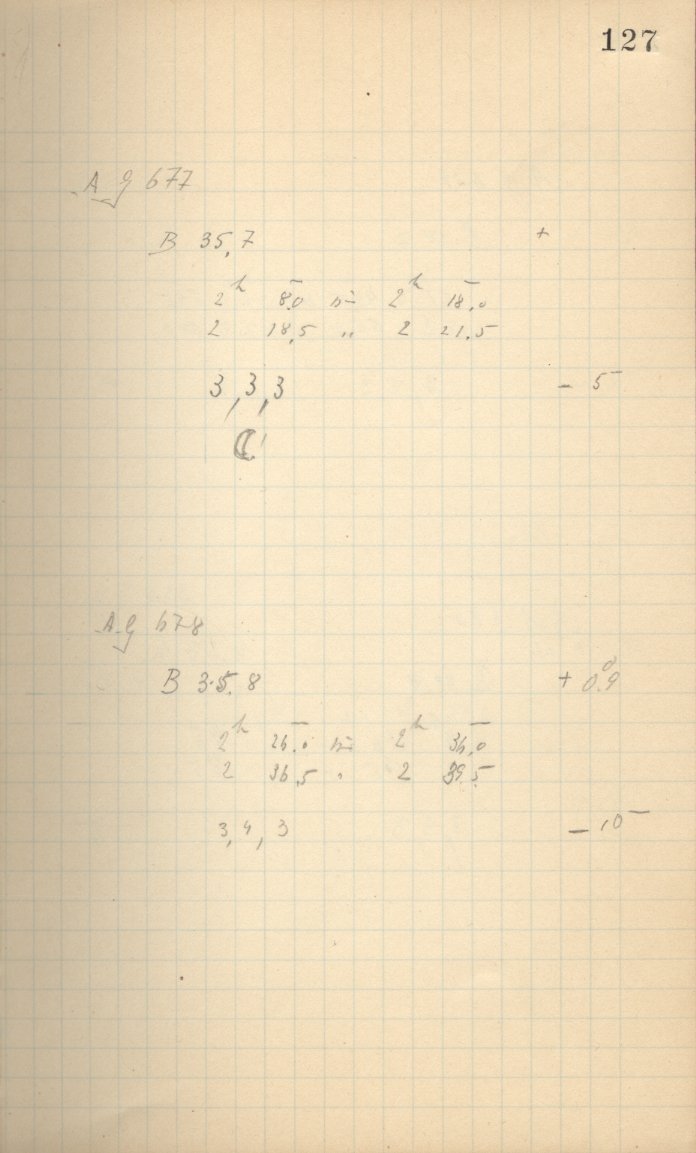 127
A G 677
B 35,7 +
2h 8,0 bis 2h 18,0
2 18,5 " 2 21,5
3, 3, 3 – 5
A G 678
B 35,8 + 0°.9
2h 26,0 bis 2h 36,0
2 36,5 " 2 39,5
3, 4, 3 – 10